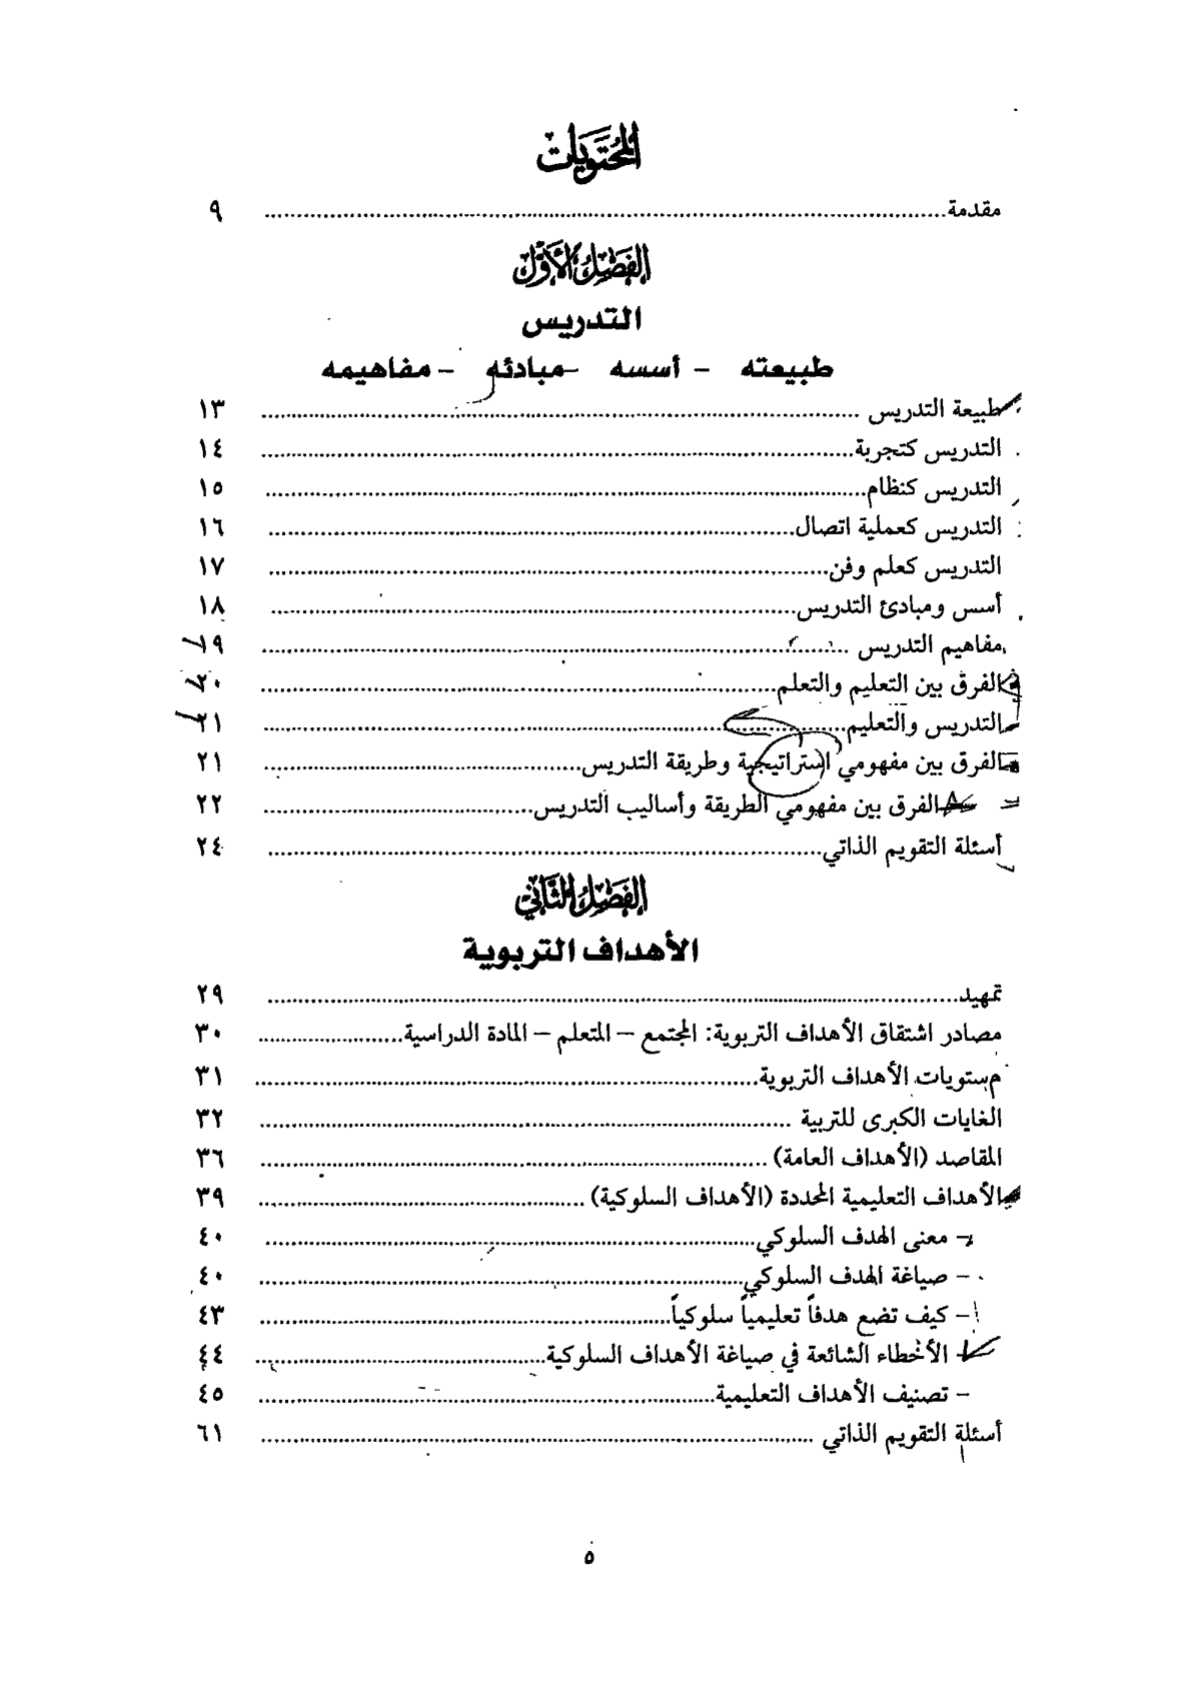 المُحتويات
مقدمة................................ ٩
الفصل الأول
التدريس
طبيعته – أسسه – مبادئه – مفاهيمه
طبيعة التدريس ................................ ١٣
التدريس كتجربة................................ ١٤
التدريس كنظام................................ ١٥
التدريس كعملية اتصال................................ ١٦
التدريس كعلم وفن................................ ١٧
أسس ومبادئ التدريس................................ ١٨
مفاهيم التدريس ................................ ١٩
الفرق بين التعليم والتعلم................................ ٢٠
التدريس والتعليم................................ ٢١
الفرق بين مفهومي استراتيجية وطريقة التدريس................................ ٢١
الفرق بين مفهومي الطريقة وأساليب التدريس................................ ٢٢
أسئلة التقويم الذاتي................................ ٢٤
الفصل الثاني
الأهداف التربوية
تمهيد................................ ٢٩
مصادر اشتقاق الأهداف التربوية: المجتمع – المتعلم – المادة الدراسية................................ ٣٠
مستويات الأهداف التربوية................................ ٣١
الغايات الكبرى للتربية ................................ ٣٢
المقاصد (الأهداف العامة) ................................ ٣٦
الأهداف التعليمية المحددة (الأهداف السلوكية) ................................ ٣٩
– معنى الهدف السلوكي................................ ٤٠
– صياغة الهدف السلوكي................................ ٤٠
– كيف تضع هدفاً تعليمياً سلوكياً................................ ٤٣
– الأخطاء الشائعة في صياغة الأهداف السلوكية................................ ٤٤
– تصنيف الأهداف التعليمية................................ ٤٥
أسئلة التقويم الذاتي ................................ ٦١
٥